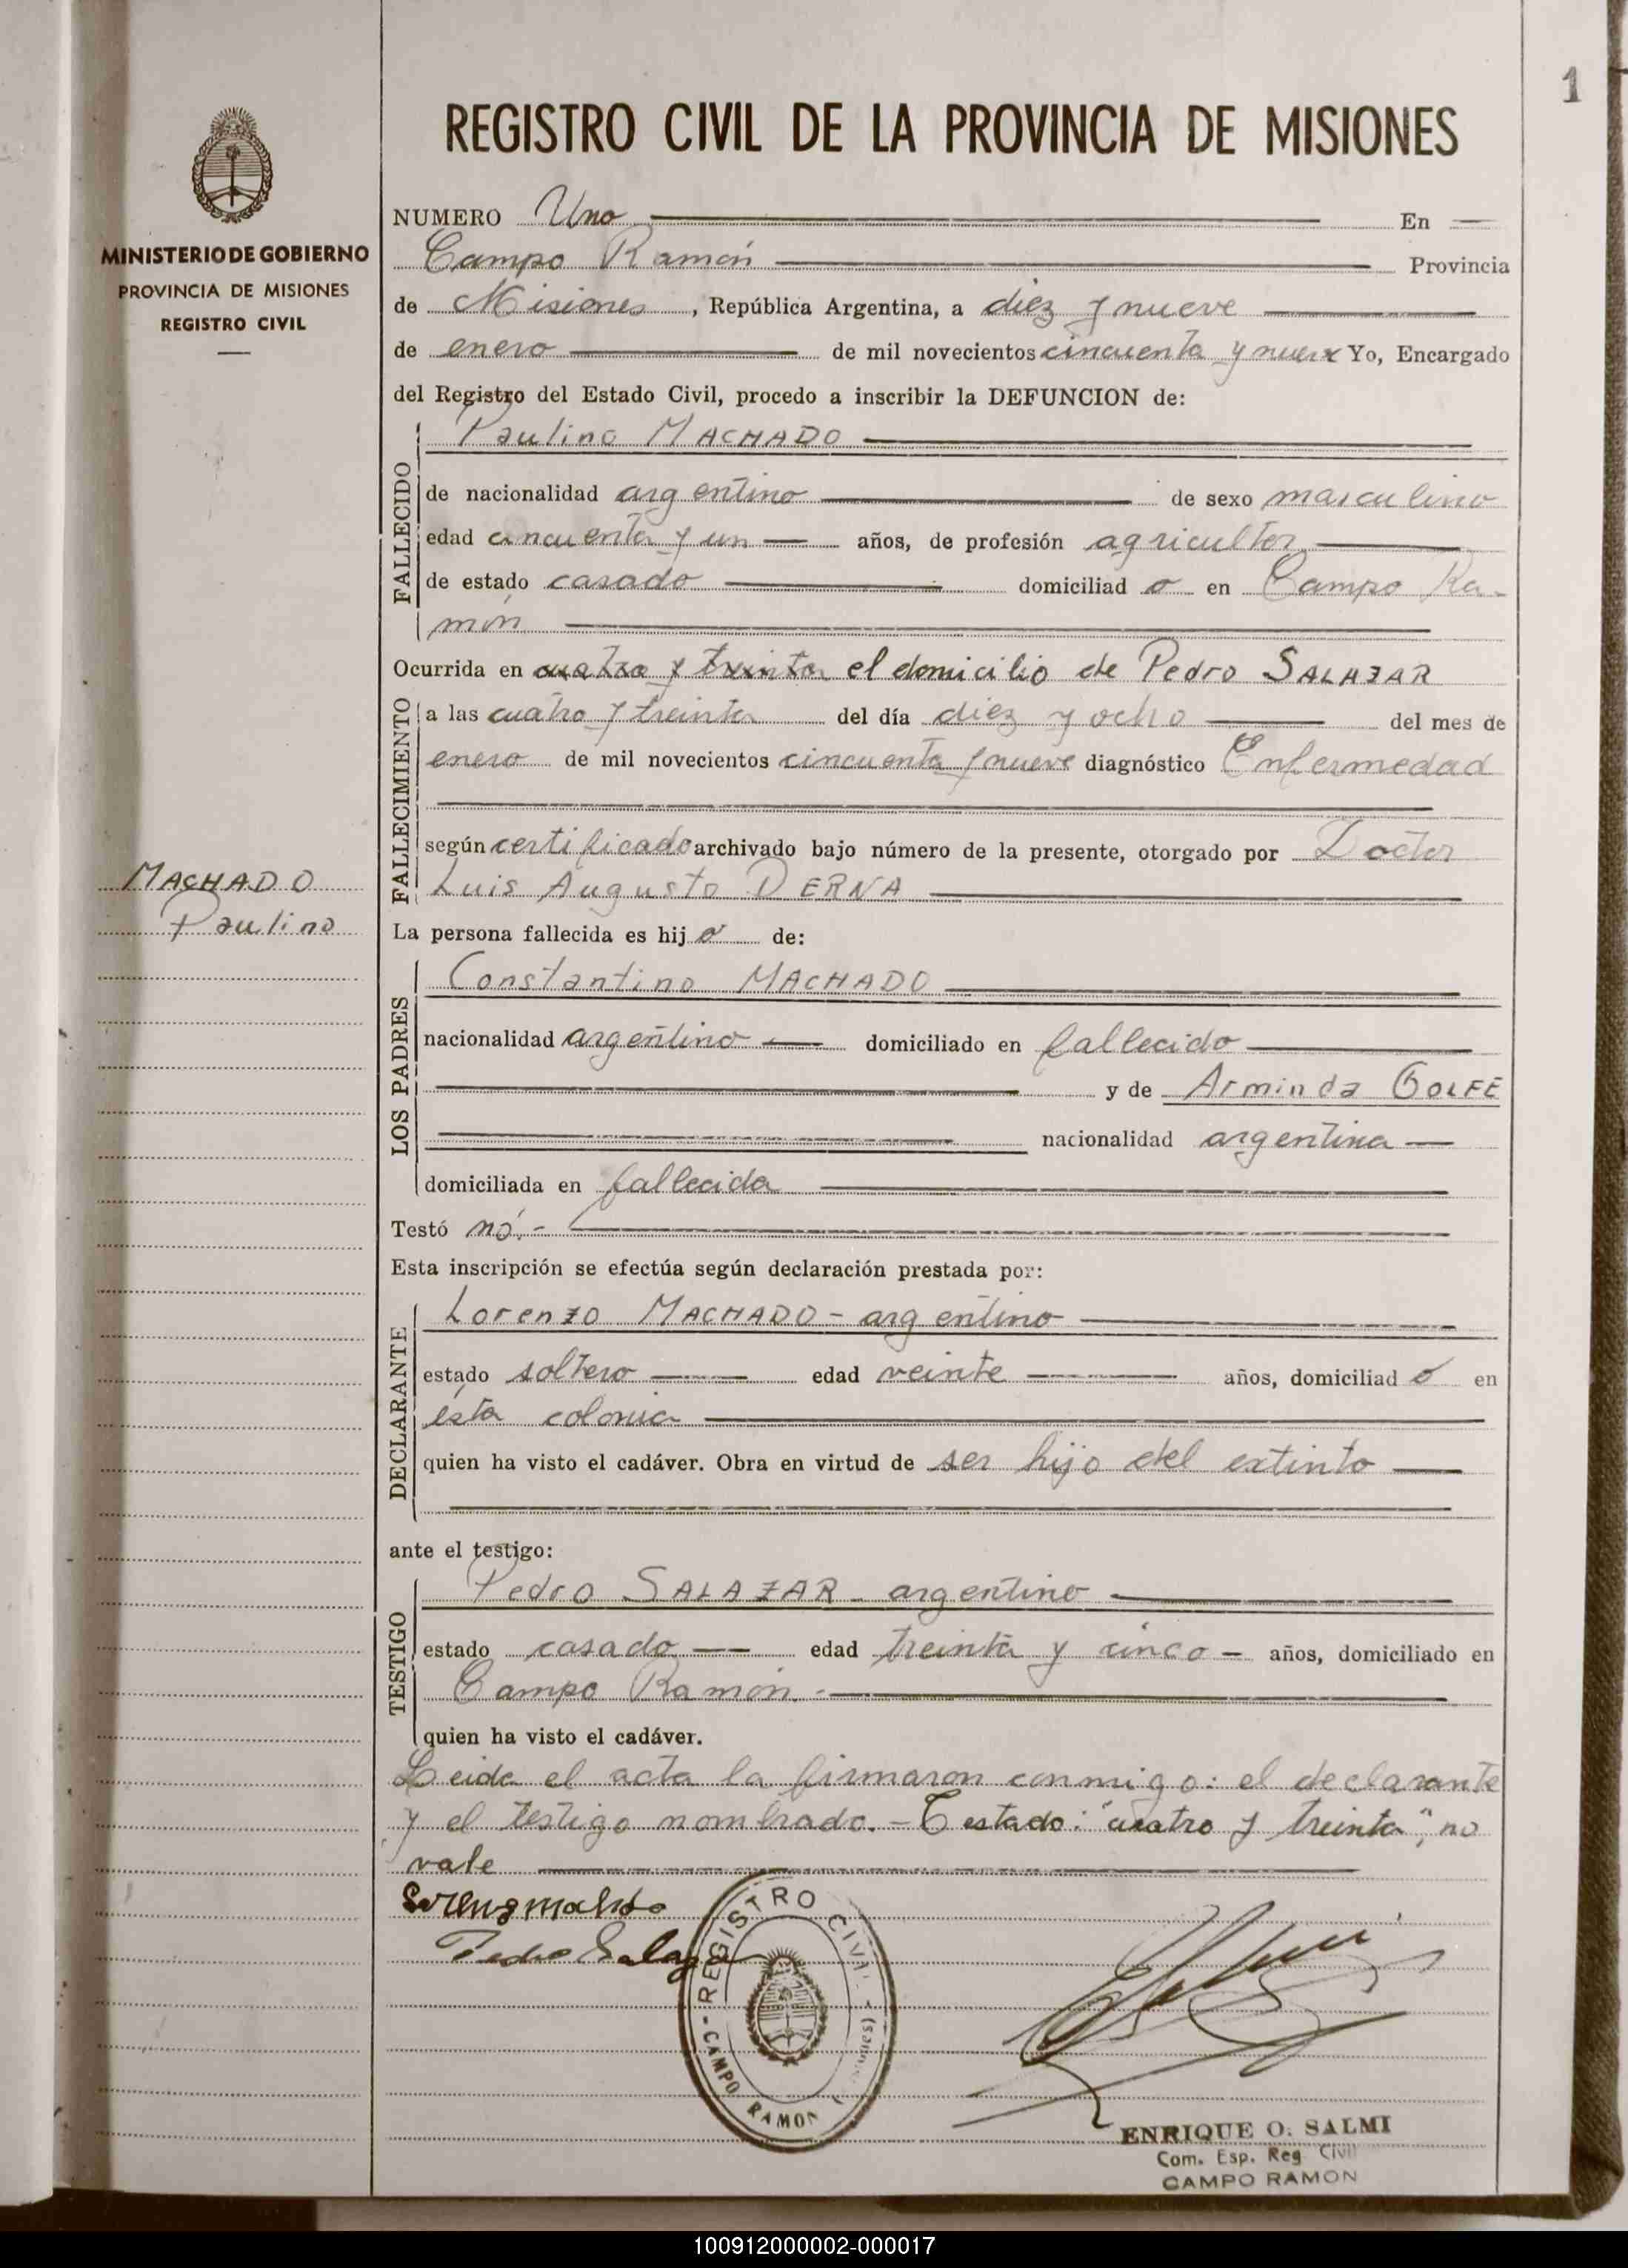 1
REGISTRO CIVIL DE LA PROVINCIA DE MISIONES
MINISTERIO DE GOBIERNO
PROVINCIA DE MISIONES
REGISTRO CIVIL
MACHADO
Paulino
NUMERO Uno En
Campo Ramón Provincia
de Misiones, República Argentina, a diez y nueve
de enero de mil novecientos cincuenta y nueve Yo, Encargado
del Registro del Estado Civil, procedo a inscribir la DEFUNCION de:
FALLECIDO
Paulino MACHADO
de nacionalidad argentino de sexo masculino
edad cincuenta y un años, de profesión agricultor
de estado casado domiciliad o en Campo Ra-
món
Ocurrida en cuatro y treinta el domicilio de Pedro SALAZAR
FALLECIMIENTO
a las cuatro y treinta del día diez y ocho del mes de
enero de mil novecientos cincuenta y nueve diagnóstico Enfermedad
según certificado archivado bajo número de la presente, otorgado por Doctor
Luis Augusto DERNA
La persona fallecida es hij o de:
LOS PADRES
Constantino MACHADO
nacionalidad argentino domiciliado en fallecido
y de Arminda GOLFE
nacionalidad argentina
domiciliada en fallecida
Testó nó.-
Esta inscripción se efectúa según declaración prestada por:
DECLARANTE
Lorenzo MACHADO - argentino
estado soltero edad veinte años, domiciliad o en
ésta colonia
quien ha visto el cadáver. Obra en virtud de ser hijo del extinto
ante el testigo:
TESTIGO
Pedro SALAZAR - argentino
estado casado edad treinta y cinco - años, domiciliado en
Campo Ramón.-
quien ha visto el cadáver.
Leida el acta la firmaron conmigo: el declarante
y el testigo nombrado.- Testado: "cuatro y treinta", no
vale
Pedro Salazar
REGISTRO CIVIL
CAMPO RAMON
ENRIQUE O. SALMI
Com. Esp. Reg Civil
CAMPO RAMON
100912000002-000017